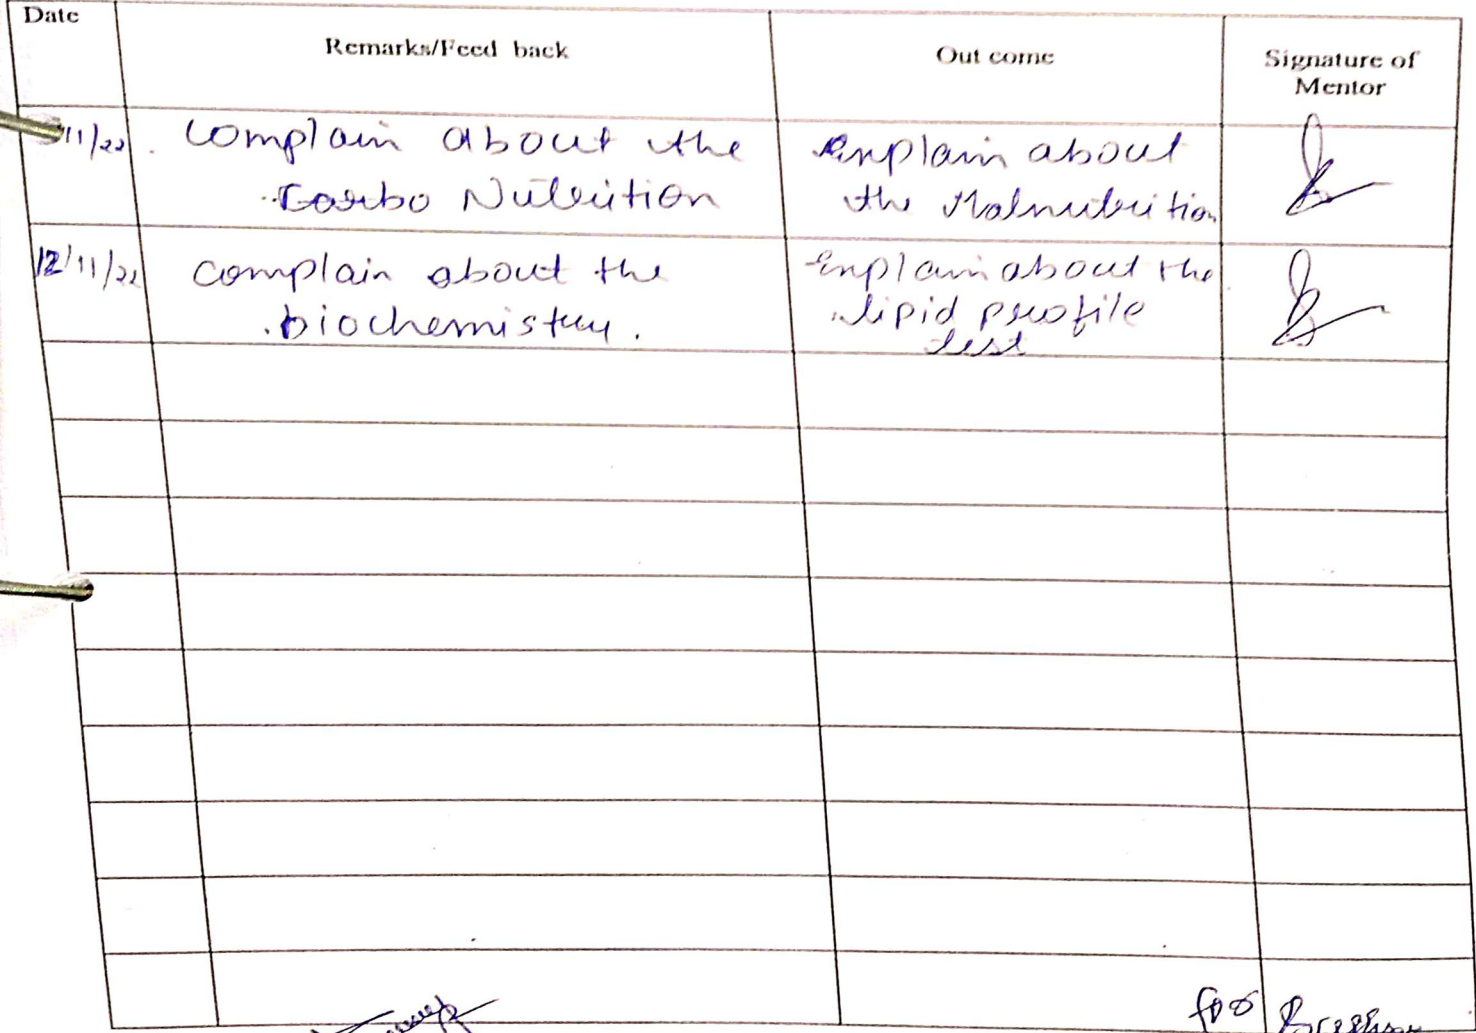 Date
Remarks/Feed back
Out come
Signature of
Mentor
11/22. complain about the
Carbo Nutrition
Explain about
the Malnutrition
12/11/22 complain about the
biochemistry.
Explain about the
lipid profile
test
for